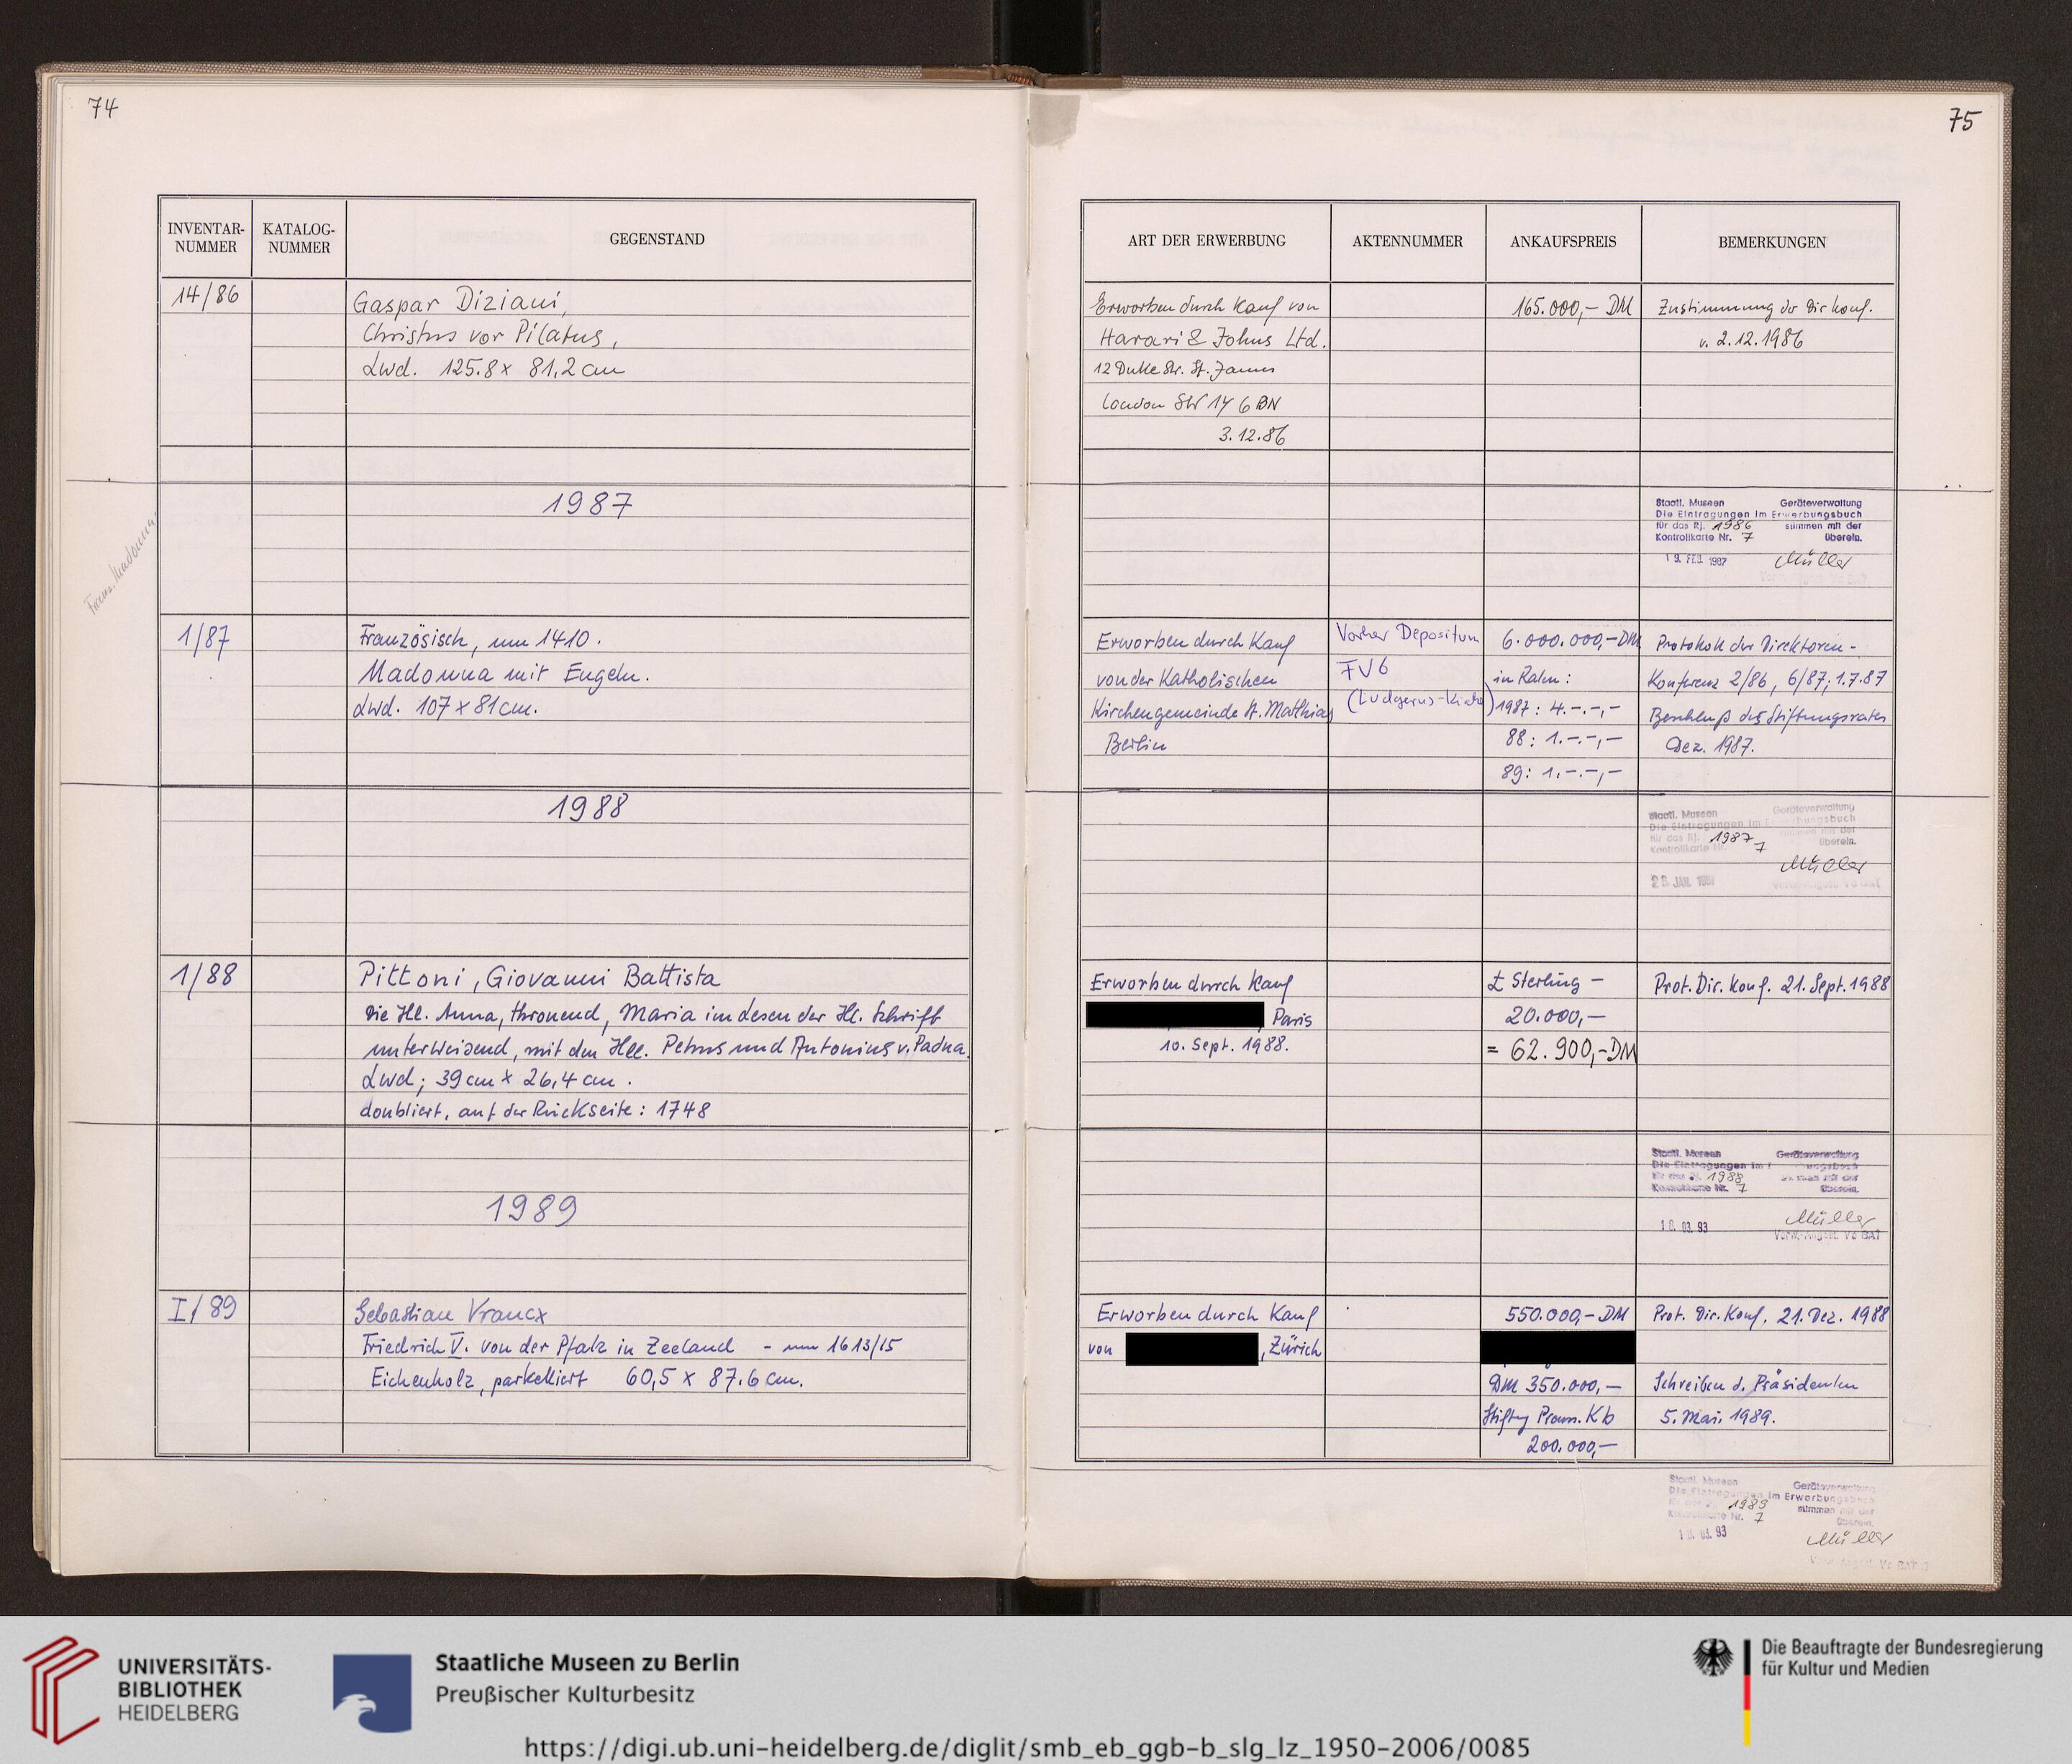 74
INVENTAR-
NUMMER
KATALOG-
NUMMER
GEGENSTAND
14/86
Gaspar Diziani,
Christus vor Pilatus,
Lwd. 125.8 x 81,2 cm
1987
Franz. Madonna
1/87
Französisch, um 1410.
Madonna mit Engeln.
Lwd. 107 x 81 cm.
1988
1/88
Pittoni, Giovanni Battista
Die Hl. Anna, thronend, Maria im Lesen der Hl. Schrift
unterweisend, mit den Hll. Petrus und Antonius v. Padua.
Lwd; 39 cm x 26,4 cm.
doubliert, auf der Rückseite: 1748
1989
I/89
Sebastian Vrancx
Friedrich V. von der Pfalz in Zeeland - um 1613/15
Eichenholz, parkettiert 60,5 x 87.6 cm.
75
ART DER ERWERBUNG
AKTENNUMMER
ANKAUFSPREIS
BEMERKUNGEN
Erworben durch Kauf von
Harari & Johns Ltd.
12 Duke Str. St. James
London SW 1Y 6 BN
3.12.86
165.000,- DM
Zustimmung der Dir konf.
v. 2.12.1986
Staatl. Museen Geräteverwaltung
Die Eintragungen im Erwerbungsbuch
für das Rj. 1986 stimmen mit der
Kontrollkarte Nr. 7 überein.
19. FEB. 1987 Müller
Erworben durch Kauf
von der Katholischen
Kirchengemeinde St. Mathias
Berlin
Vorher Depositum
FV6
(Ludgerus-Kirche)
6.000.000,- DM
in Raten:
1987: 4.-.-,-
88: 1.-.-,-
89: 1.-.-,-
Protokoll der Direktoren-
Konferenz 2/86, 6/87; 1.7.87
Beschluß des Stiftungsrates
Dez. 1987.
Staatl. Museen Geräteverwaltung
Die Eintragungen im Erwerbungsbuch
für das Rj. 1987 stimmen mit der
Kontrollkarte Nr. 7 überein.
Müller
JAN.
Erworben durch Kauf
Paris
10. Sept. 1988.
£ Sterling -
20.000,-
= 62.900,- DM
Prot. Dir. Konf. 21. Sept. 1988
Staatl. Museen Geräteverwaltung
Die Eintragungen im Erwerbungsbuch
für das Rj. 1988 stimmen mit der
Kontrollkarte Nr. 7 überein.
18. 03. 93 Müller
Erworben durch Kauf
von , Zürich
550.000,- DM
DM 350.000,-
Stiftg Preuss. Kb
200.000,-
Prot. Dir. Konf. 21. Dez. 1988
Schreiben d. Präsidenten
5. Mai 1989.
Staatl. Museen Geräteverwaltung
Die Eintragungen im Erwerbungsbuch
für das Rj. 1989 stimmen mit der
Kontrollkarte Nr. 7 überein.
18. 03. 93 Müller
UNIVERSITÄTS-
BIBLIOTHEK
HEIDELBERG
Staatliche Museen zu Berlin
Preußischer Kulturbesitz
Die Beauftragte der Bundesregierung
für Kultur und Medien
https://digi.ub.uni-heidelberg.de/diglit/smb_eb_ggb-b_slg_lz_1950-2006/0085